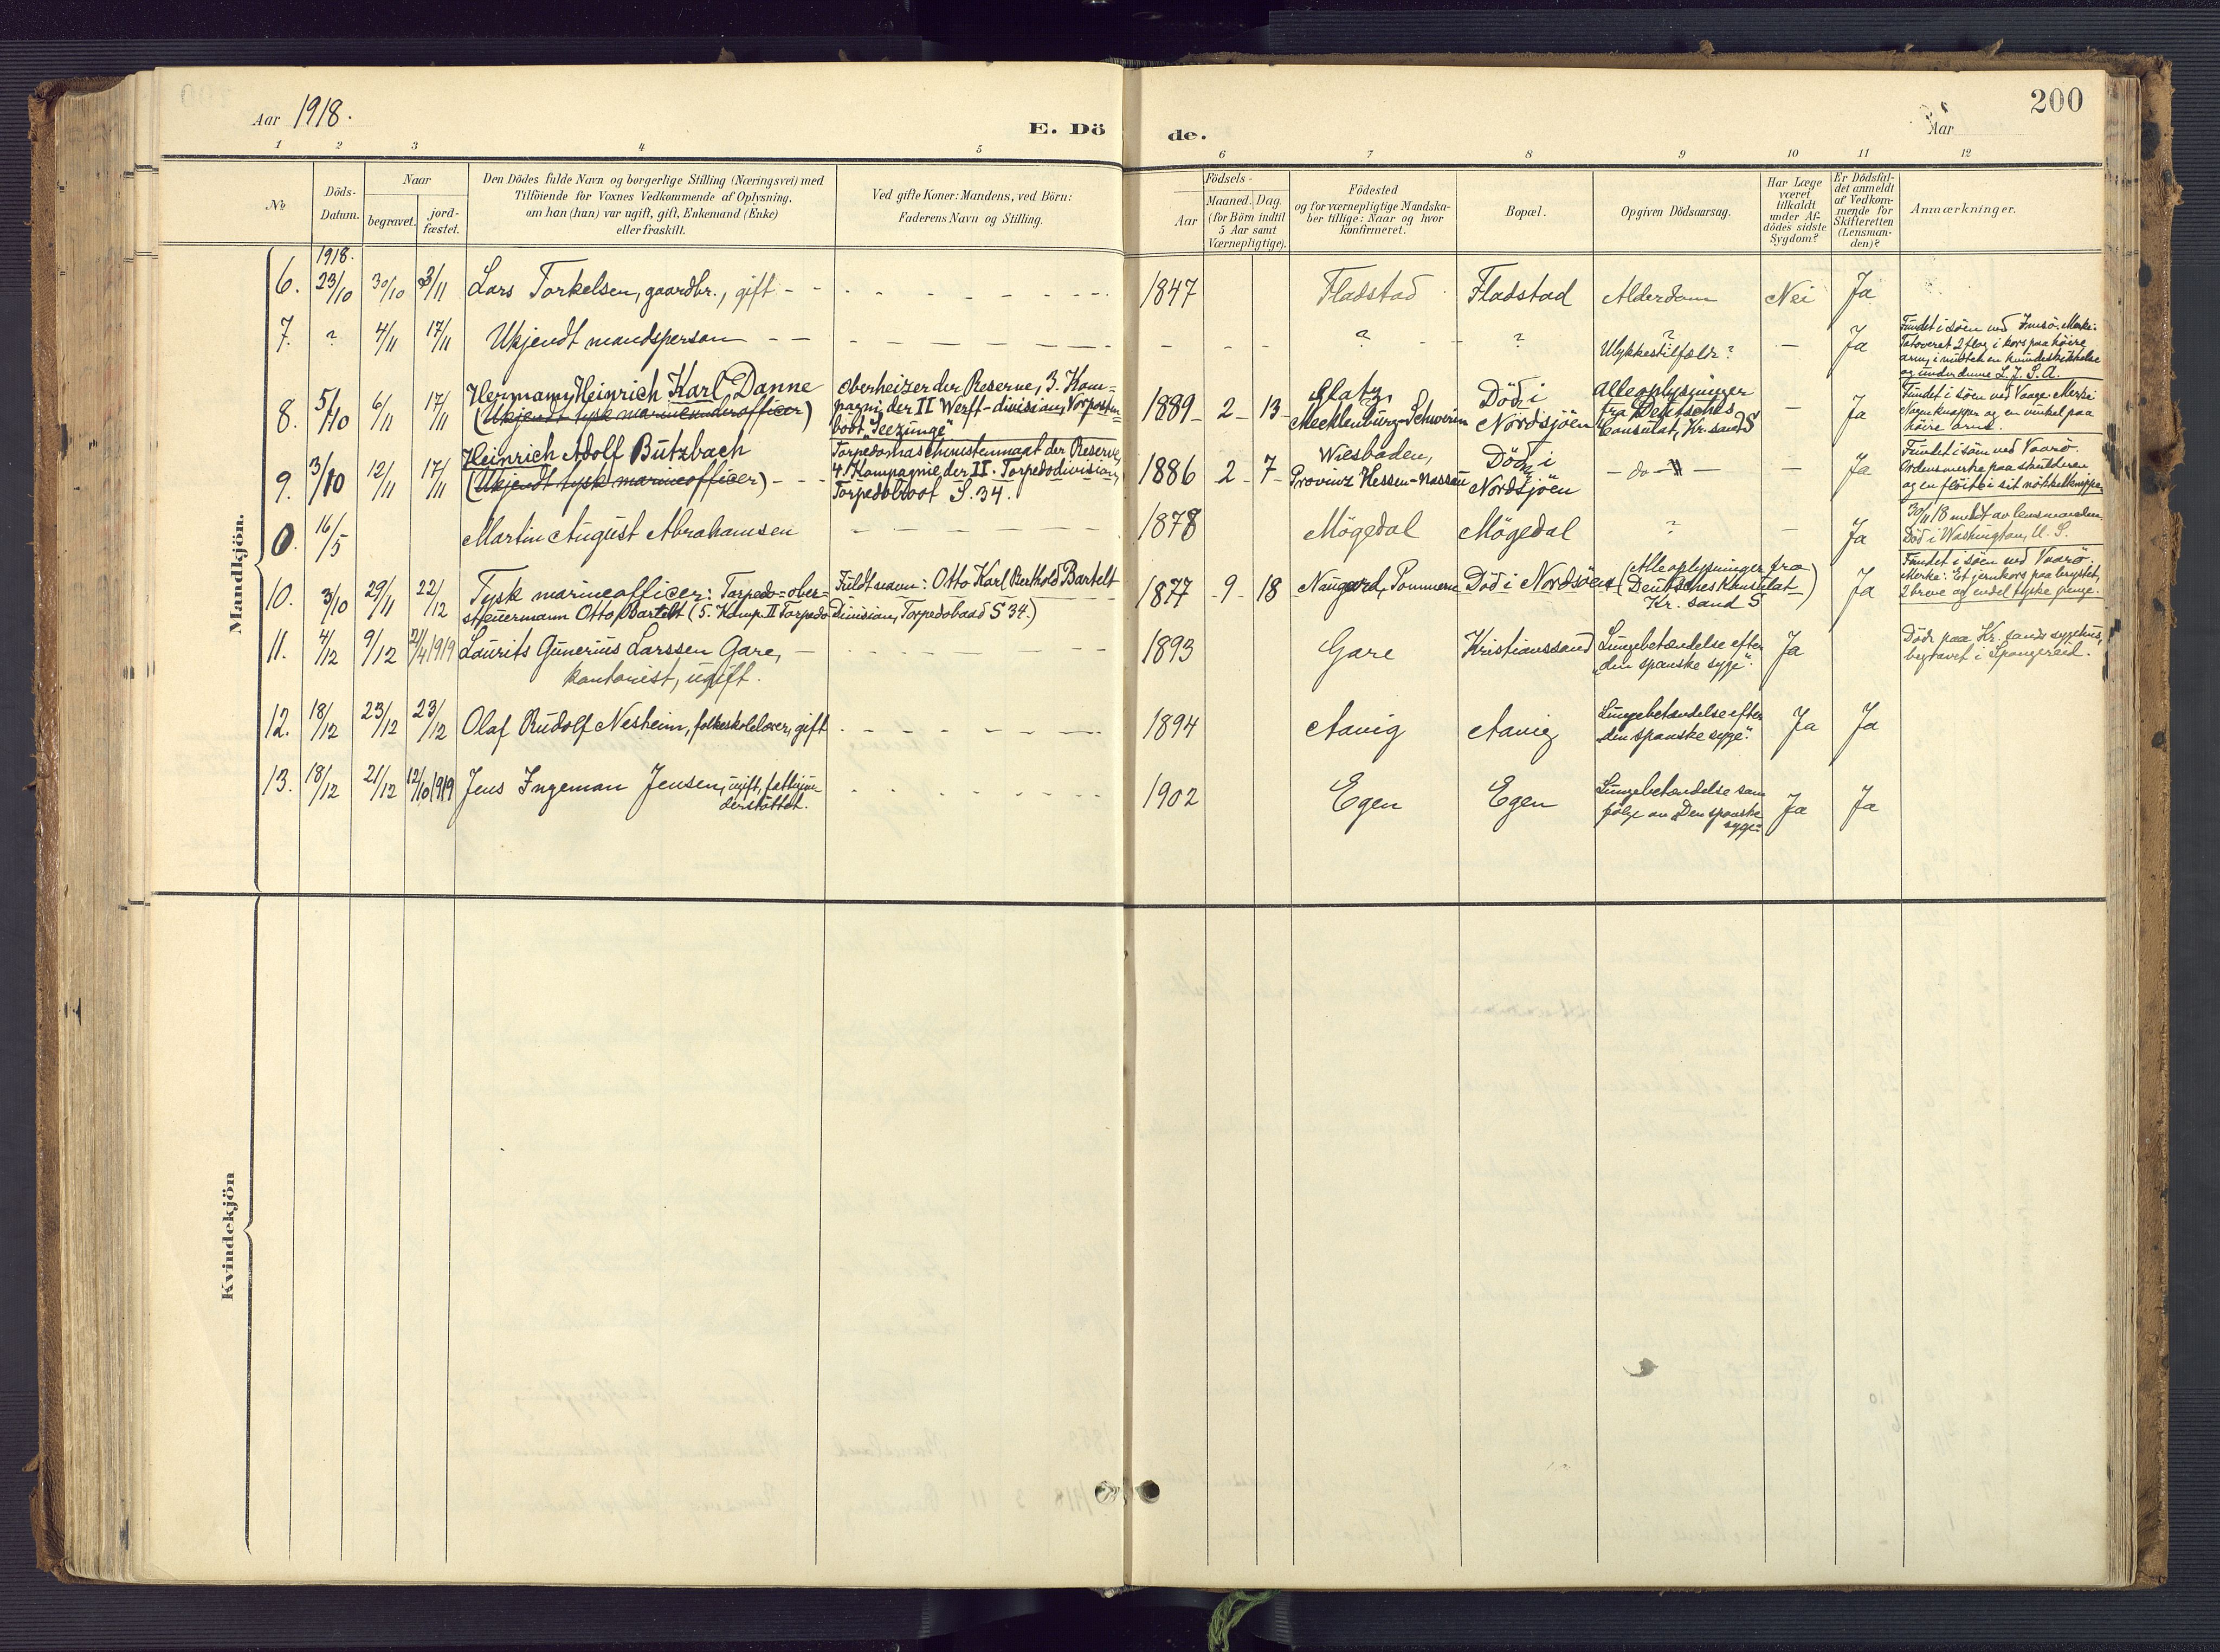 200
Aar 1918.
E. Dö de.
Aar
1 2 3 4 5 6 7 8 9 10 11 12
No
Döds-Datum.
Naar
begravet.
jord-fæstet.
Den Dödes fulde Navn og borgerlige Stilling (Næringsvei) med
Tilföiende for Voxnes Vedkommende af Oplysning,
om han (hun) var ugift, gift, Enkemand (Enke)
eller fraskilt.
Ved gifte Koner: Mandens, ved Börn:
Faderens Navn og Stilling.
Födsels-
Aar
Maaned. Dag.
(for Börn indtil
5 Aar samt
Værnepligtige).
Födested
og for værnepligtige Mandska-
ber tillige: Naar og hvor
konfirmeret.
Bopæl.
Opgiven Dödsaarsag.
Har Læge
været
tilkaldt
under Af-
dödes sidste
Sygdom?
Er Dödsfal-
det anmeldt
af Vedkom-
mende for
Skifteretten
(Lensman-
den)?
Anmærkninger.
Mandkjön.
1918.
6. 23/10 30/10 3/11 Lars Torkelsen, gaardbr., gift - - 1847 Fladstad Fladstad Alderdom Nei Ja
7. ? 4/11 17/11 Ukjendt mandsperson - - - ? ? ? Ulykkestilfælde? - Ja
Fundet i söen ved Imsö. Merke:
Tatoveret 2 flag i kors paa höire
arm, i midten en kvindeskikkelse
og under denne L. J. S. A.
8. 5/10 6/11 17/11 Hermann Heinrich Karl Danne
(Ukjendt tysk marineunderofficer)
Oberheizer der Reserve, 3. Kom-
pagni der II Werft-division, Vorposten-
boot "Seezunge"
1889 - 2 - 13 - Glatz, Mecklenburg-Schwerin
Död i Nordsjöen
Alle oplysninger
fra Deutsches
Consulat, Kr.sand S
- Ja
Fundet i söen ved Vaage. Merke:
Navneknapper og en vinkel paa
höire arm.
9. 3/10 12/11 17/11 Heinrich Adolf Butzbach
(Ukjendt tysk marineofficer) - - -
Torpedomaschinistenmaat der Reserve,
4. Kompagnie der II. Torpedodivision,
Torpedoboot S. 34.
1886 2 - 7 - Wiesbaden,
Provinz Hessen-Nassau
Död i Nordsjöen
- do - - Ja
Fundet i söen ved Vaarö.
Ordensmerke paa skulderen
og en flöite i sit
0. 16/5 Martin August Abrahamsen - - - 1878 Mögedal Mögedal ? - Ja
30/11 18 meldt av lensmanden.
Död i Washington, U. S.
10. 3/10 29/11 22/12 Tysk marineofficer: Torpedo-ober-
steuermann Otto Bartelt (5. Komp. II Torpedo
Fuldt navn: Otto Karl Berthold Bartelt
Division, Torpedobaad S 34.)
1877 - 9 - 18 Naugard, Pommern Död i Nordsöen
(Alle oplysninger fra
Deutsches Konsulat
Kr. sand S)
Ja
Fundet i söen ved Vaarö.
Merke: Et jernkors paa brystet,
2 breve og endel tyske penge.
11. 4/12 9/12 21/4 1919 Laurits Gunerius Larssen Gare, -
kontorist, ugift.
1893 Gare Kristianssand
Lungebetændelse efter
"den spanske syge".
Ja
Döde paa Kr. sands sygehus,
begravet i Spangereid.
12. 18/12 23/12 23/12 Olaf Rudolf Nesheim, folkeskolelærer, gift 1894 Aavig Aavig
Lungebetændelse efter
"den spanske syge".
Ja Ja
13. 18/12 21/12 12/10 1919 Jens Ingeman Jensen, ugift, fattigun-
derstöttet.
1902 Egen Egen
Lungebetændelse som
fölge av "Den spanske
syge"
Ja Ja
Kvindekjön